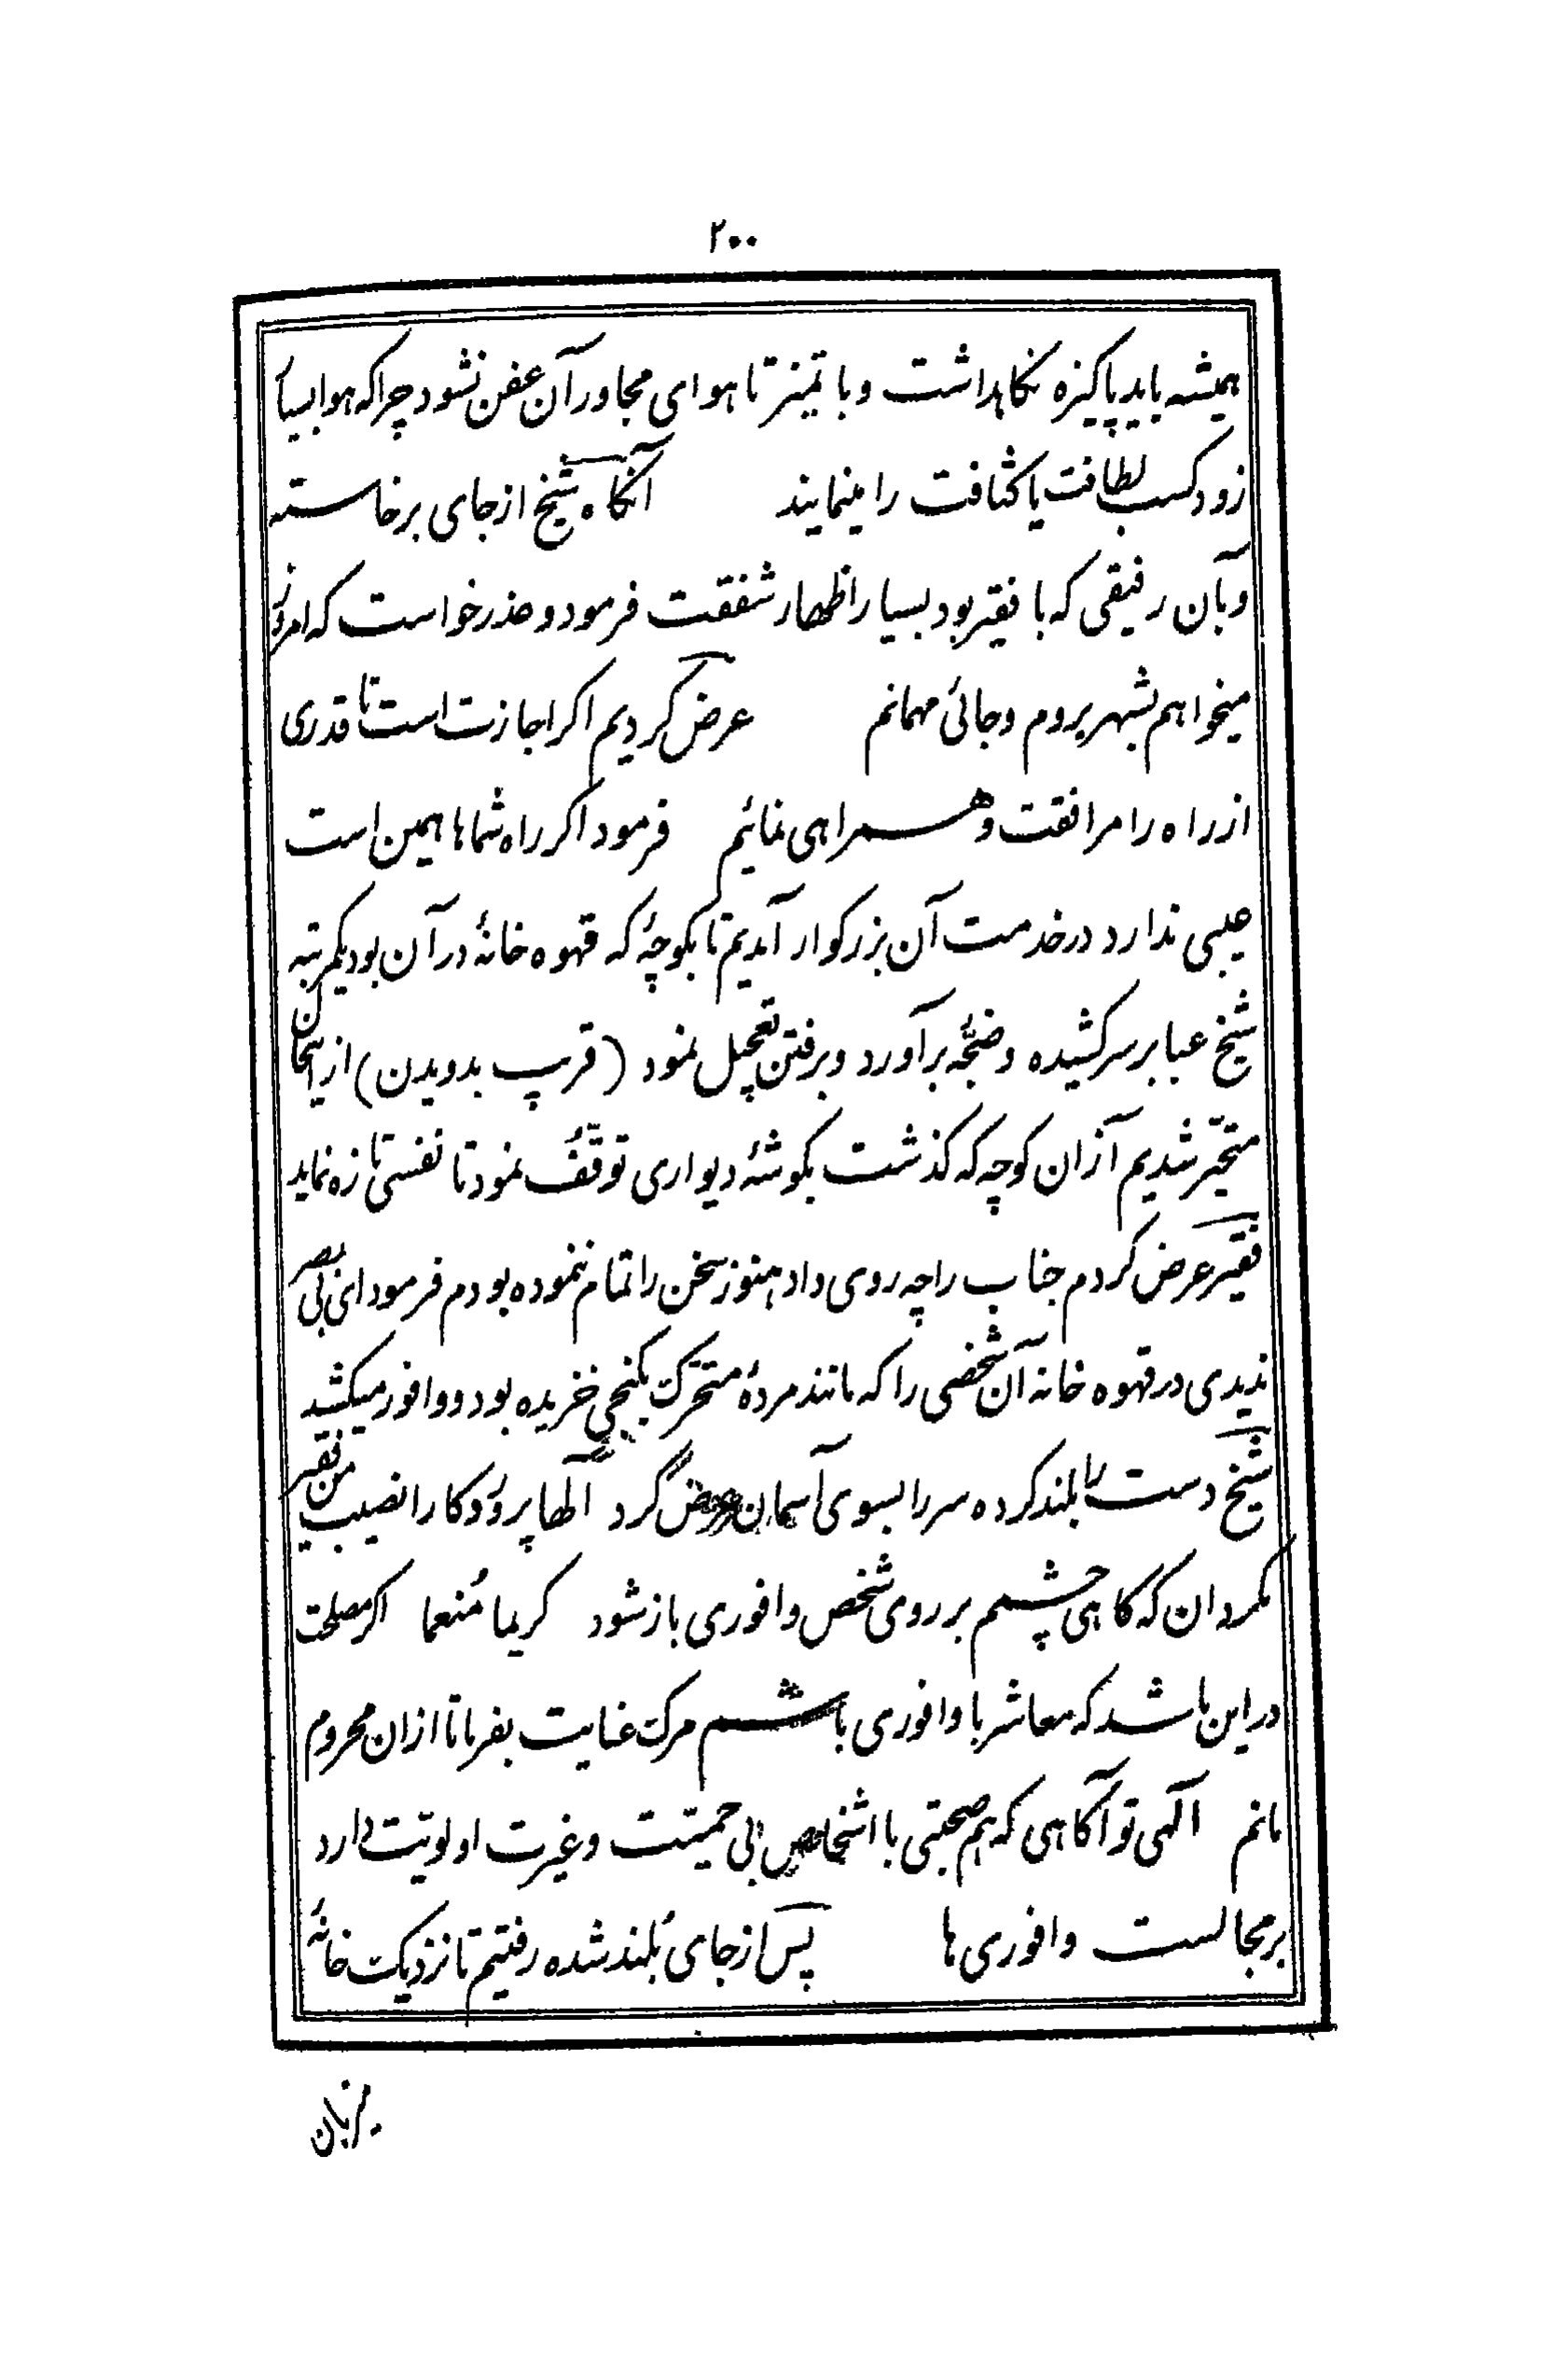 ۲۰۰
همیشه باید پاکیزه نکاهداشت وبا تمیز تا هوای مجاور آن عفن نشود چراکه هوا بسیا
زود کسب لطافت یا کثافت را مینمایند آنکاه شیخ از جای برخاسته
وبآن رفیقی که با فقیر بود بسیار اظهار شفقت فرمود و عذر خواست که امروز
میخواهم بشهر بروم و جائی مهمانم عرض کردیم اکر اجازت است تا قدری
از راه را مرافقت و همراهی نمائیم فرمود اکر راه شماها همین است
عیبی ندارد در خدمت آن بزرکوار آمدیم تا بکوچهٔ که قهوه خانهٔ در آن بود یکمرتبه
شیخ عبا بر سر کشیده و ضجّهٔ بر آورد و برفتن تعجیل نمود (قریب بدویدن) از اینحال
متحیّر شدیم از آن کوچه که کذشت بکوشهٔ دیواری توقّف نمود تا نفسی تازه نماید
فقیر عرض کردم جناب را چه روی داد هنوز سخن را تمام ننموده بودم فرمود ای بی بصر
ندیدی در قهوه خانه آن شخصی را که مانند مردهٔ متحرّک بکنجی خزیده بود و وافور میکشید
شیخ دست را بلند کرده سر را بسوی آسمان عرض کرد الٓها پروردکارا نصیب من فقیر
مکردان که کاهی چشمم بر روی شخص وافوری باز شود کریما مُنعما اکر مصلحت
در این باشد که معاشر با وافوری باشم مرک عنایت بفرما تا از آن محروم
مانم الٓهی تو آکاهی که هم صحبتی با اشخاص بی حمیّت و غیرت اولویّت دارد
بر مجالست وافوری ها پس از جای بُلند شده رفتیم تا نزدیک خانهٔ
میزبان